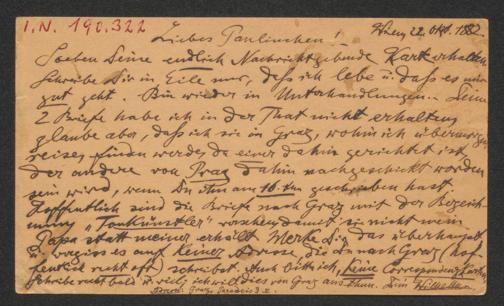 I.N. 190.322
Wien, 22. Okt. 1882.
Liebes Paulinchen!
Soeben Deine endlich Nachrichtgebende Karte erhalten
Schreibe Dir in Eile nur, dass ich lebe u. dass es mir
gut geht. Bin wieder in Unterhandlungen. Deine
2 Briefe habe ich in der That nicht erhalten,
glaube aber, dass ich sie in Graz, wohin ich übermorgen
reise, finden werde, da einer dahin gerichtet ist,
der andere von Prag dahin nachgeschickt worden
sein wird, wenn Du ihn am 16. geschrieben hast.
Hoffentlich sind die Briefe nach Graz mit der Bezeich-
nung „Tonkünstler" versehen, damit sie nicht mein
Papa statt meiner erhält. Merke Dir das überhaupt
u. vergiss es auf keiner Adresse, die Du nach Graz (hof-
fentlich recht oft) schreibst. Auch bitte ich, keine Correspondenz-Karten
Schreibe recht bald u. viel; ich will dies von Graz aus thun. Dein
Graz,